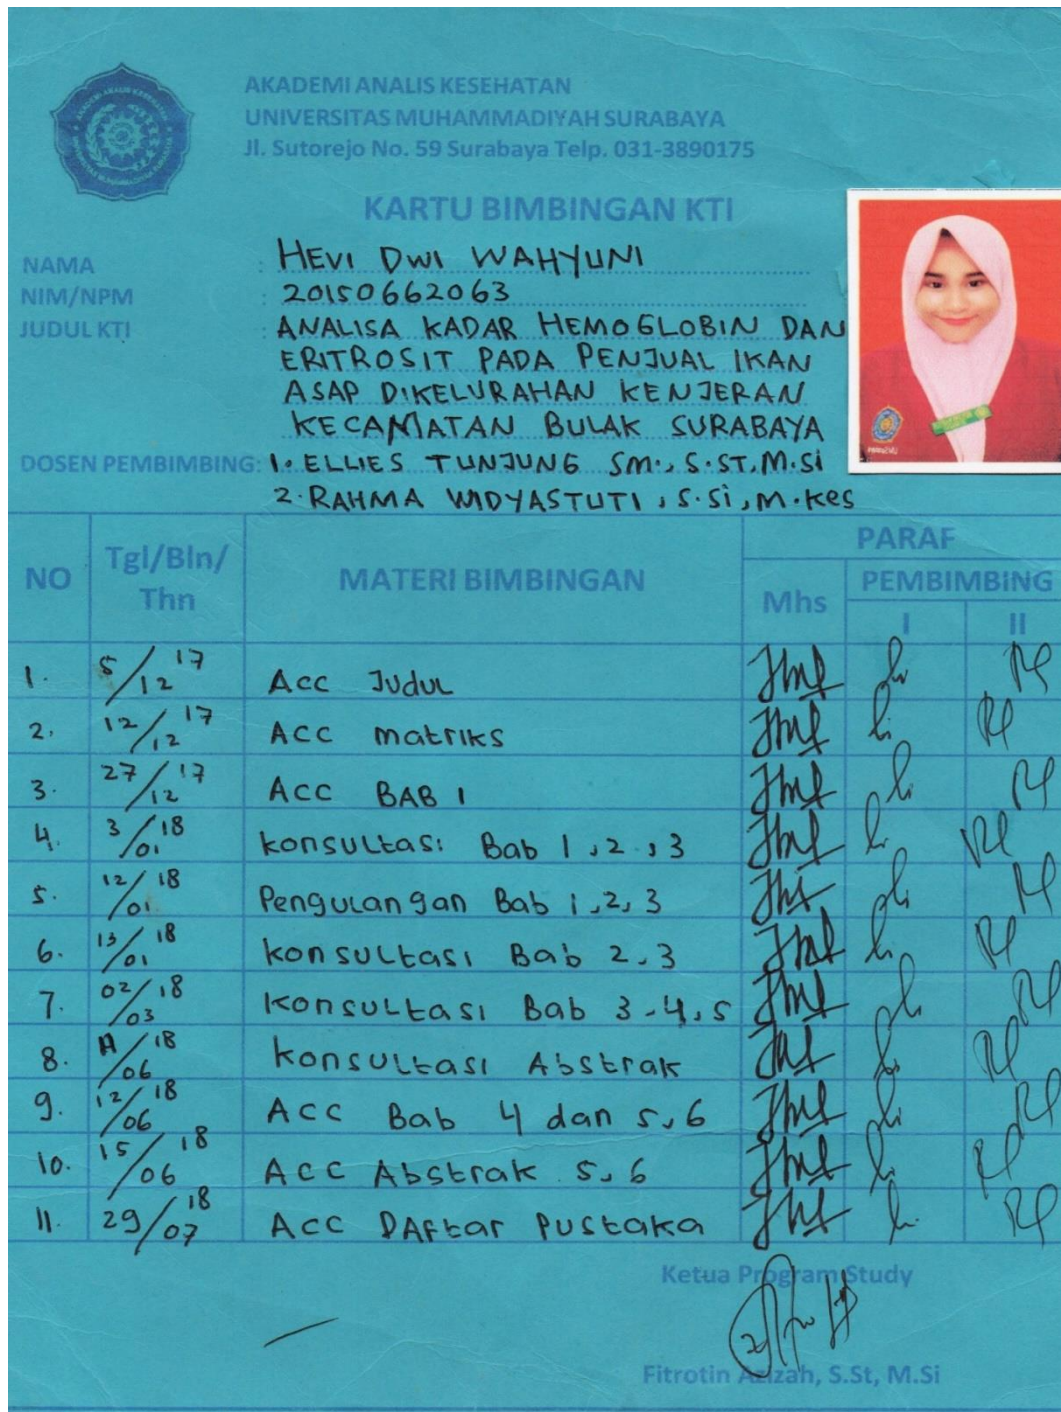 AKADEMI ANALIS KESEHATAN
UNIVERSITAS MUHAMMADIYAH SURABAYA
Jl. Sutorejo No. 59 Surabaya Telp. 031-3890175
KARTU BIMBINGAN KTI
NAMA : HEVI DWI WAHYUNI
NIM/NPM : 20150662063
JUDUL KTI : ANALISA KADAR HEMOGLOBIN DAN
ERITROSIT PADA PENJUAL IKAN
ASAP DIKELURAHAN KENJERAN
KECAMATAN BULAK SURABAYA
DOSEN PEMBIMBING: 1. ELLIES TUNJUNG SM., S.ST, M.Si
2. RAHMA WIDYASTUTI, S.Si, M.Kes
NO Tgl/Bln/Thn MATERI BIMBINGAN PARAF
Mhs PEMBIMBING
I II
1. 5/12 17 Acc Judul
2. 12/12 17 Acc matriks
3. 27/12 17 Acc BAB 1
4. 3/01 18 konsultasi Bab 1,2,3
5. 12/01 18 Pengulangan Bab 1,2,3
6. 13/01 18 konsultasi Bab 2,3
7. 02/03 18 konsultasi Bab 3-4,5
8. /06 18 konsultasi Abstrak
9. 12/06 18 Acc Bab 4 dan 5,6
10. 15/06 18 Acc Abstrak 5,6
11. 29/07 18 Acc DAftar Pustaka
Ketua Program Study
Fitrotin Azizah, S.St, M.Si